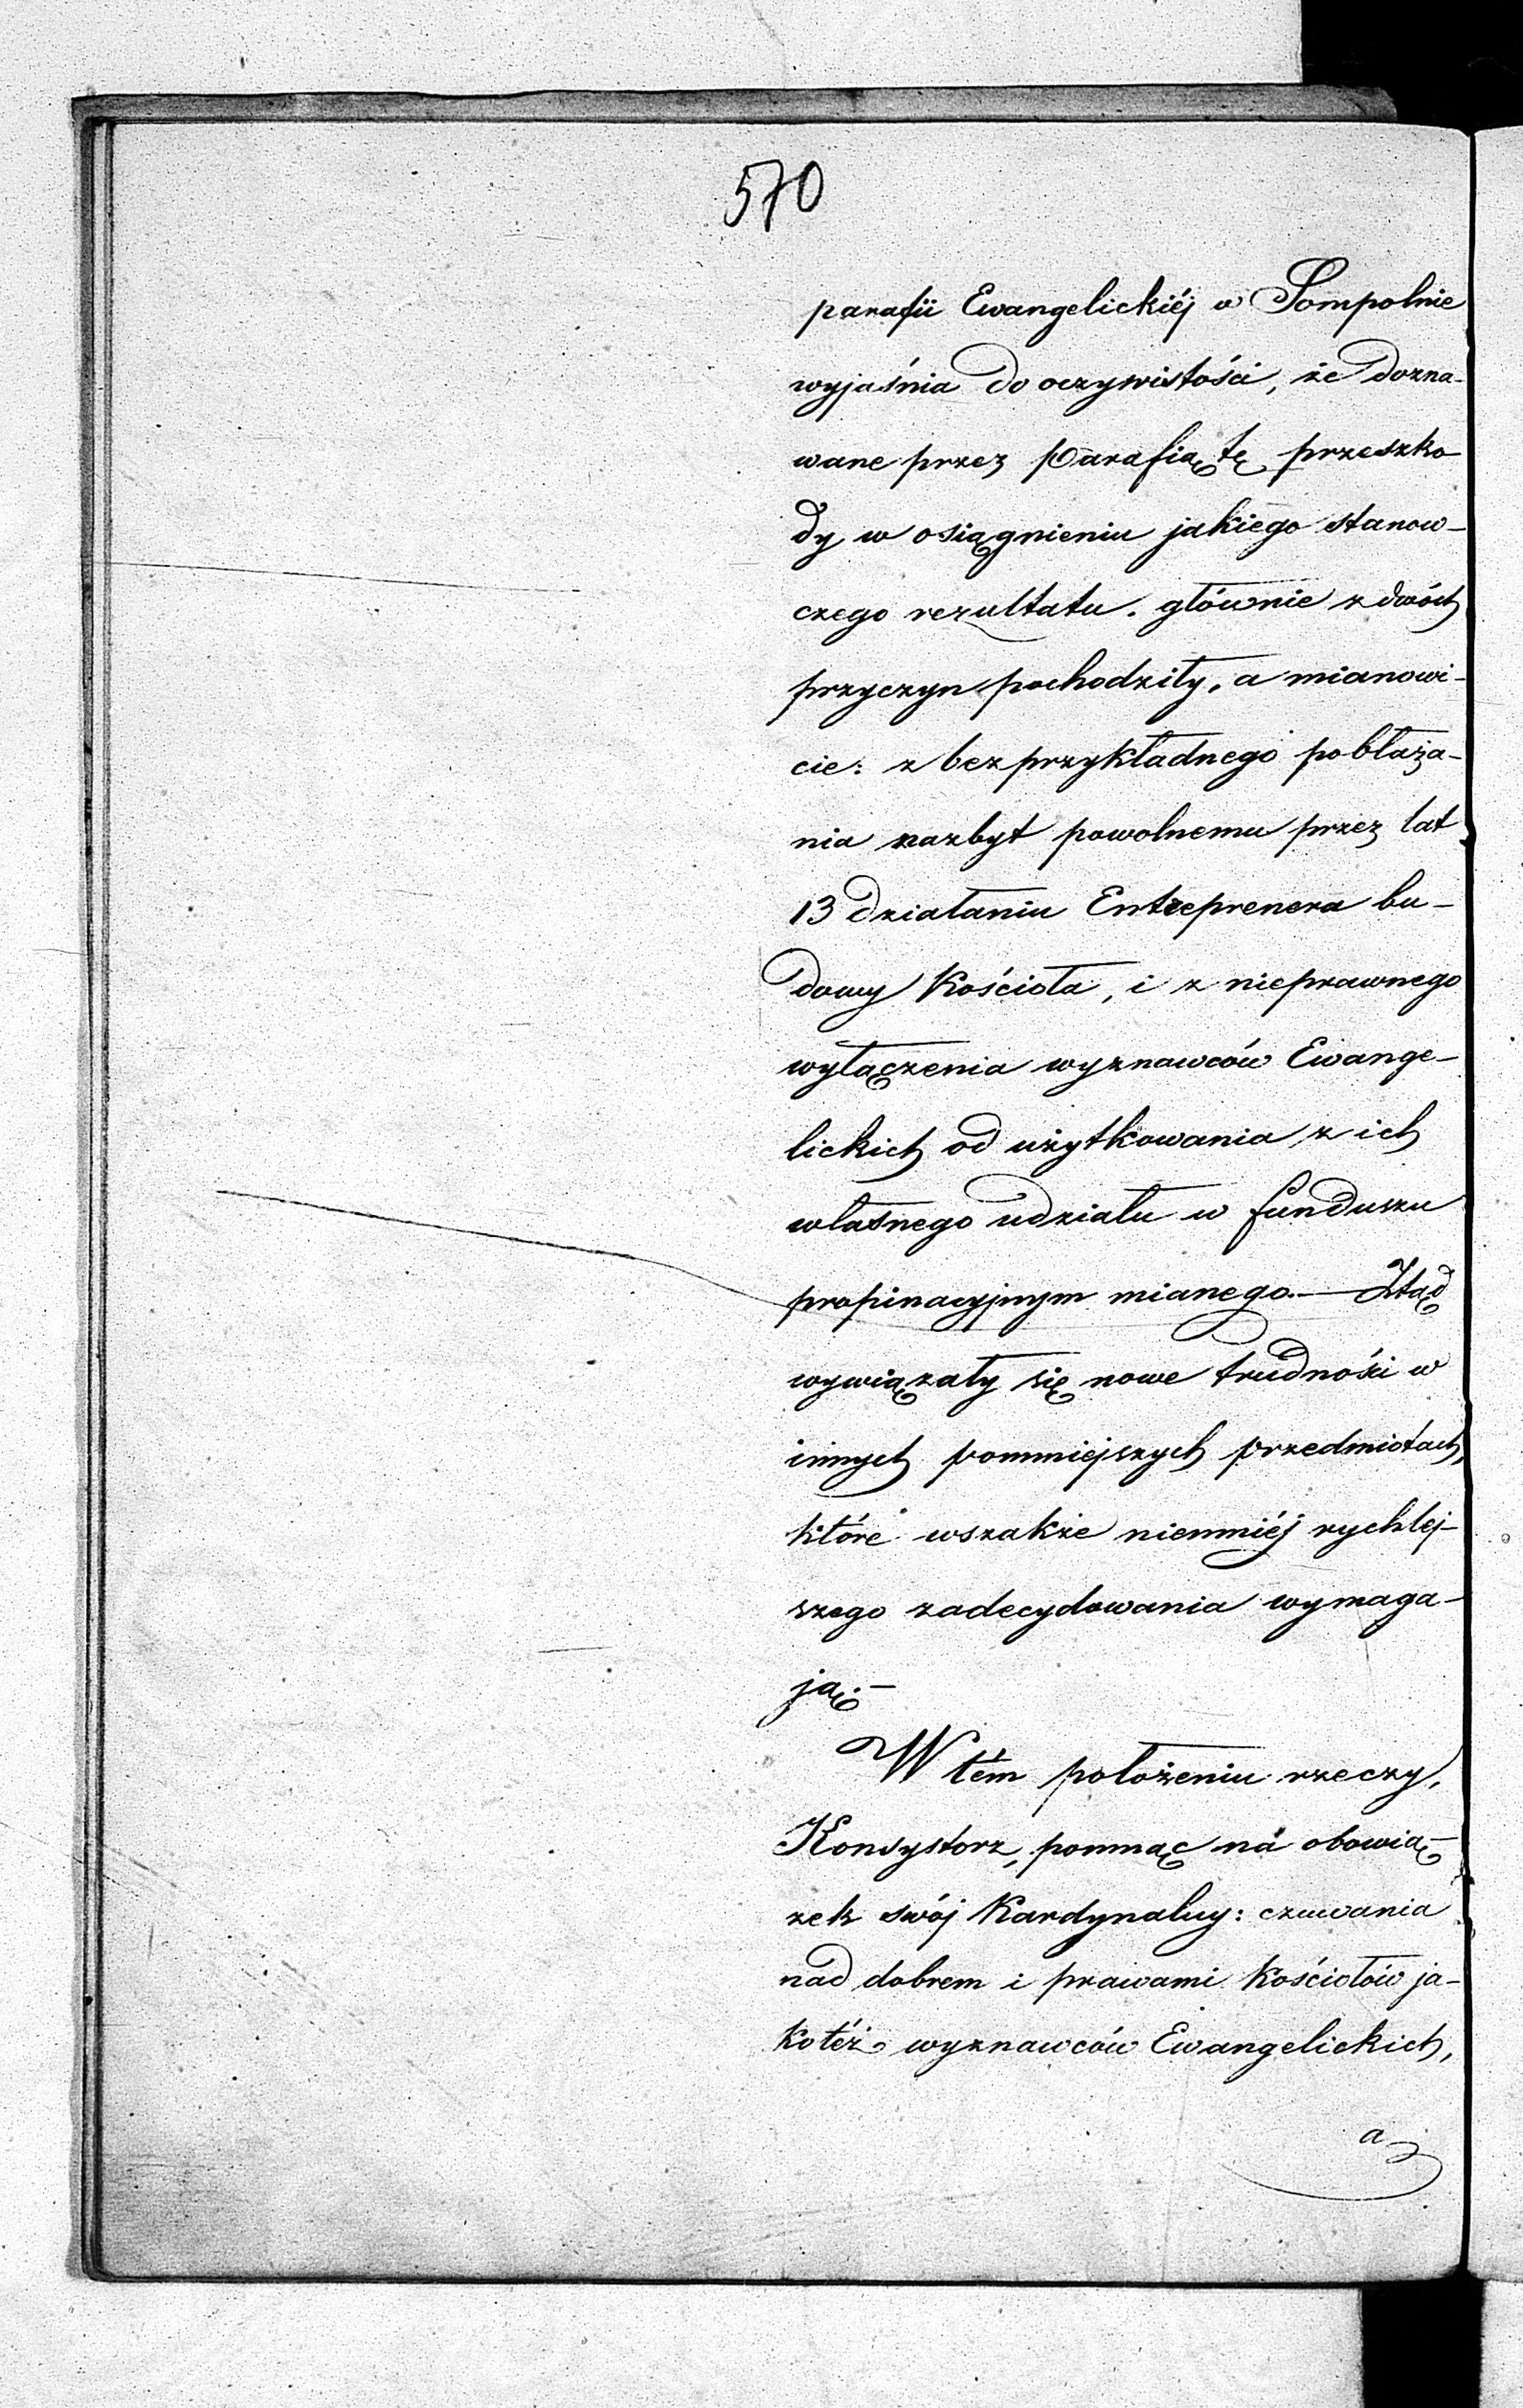 570
parafii Ewangelickiéj w Sompolnie
wyjaśnia do oczywistości, że dozna-
wane przez Parafią tę przeszko-
dy w osiągnieniu jakiego stanow-
czego rezultatu. głównie z dwóch
przyczyn pochodziły, a mianowi-
cie: z bezprzykładnego pobłaża-
nia nazbyt powolnemu przez lat
13 działaniu Entreprenera bu-
dowy Kościoła, i z nieprawnego
wyłączenia wyznawców Ewange-
lickich od użytkowania z ich
własnego udziału w funduszu
propinacyjnym mianego. — Ztąd
wywiązały się nowe trudności w
innych pomniejszych przedmiotach,
które wszakże niemniéj rychlej-
szego zadecydowania wymaga-
ją. —
W tém położeniu rzeczy,
Konsystorz, pomnąc na obowią-
zek swój Kardynalny: czuwania
nad dobrem i prawami Kościołów ja-
ko téż wyznawców Ewangelickich,
a